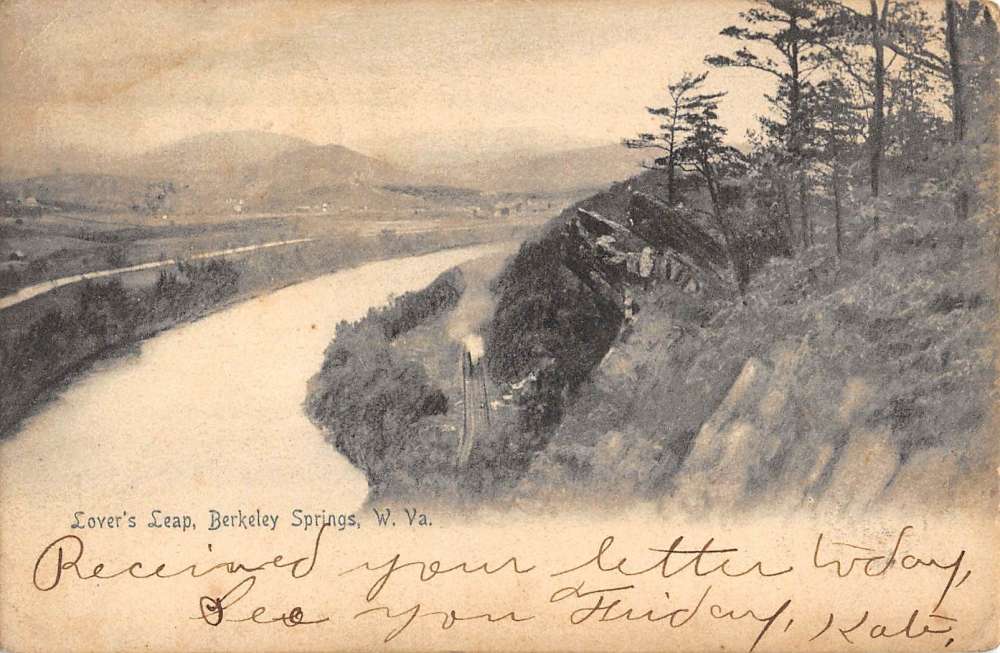 Lover's Leap, Berkeley Springs, W. Va.
Received your letter today,
See you Friday, Kate,